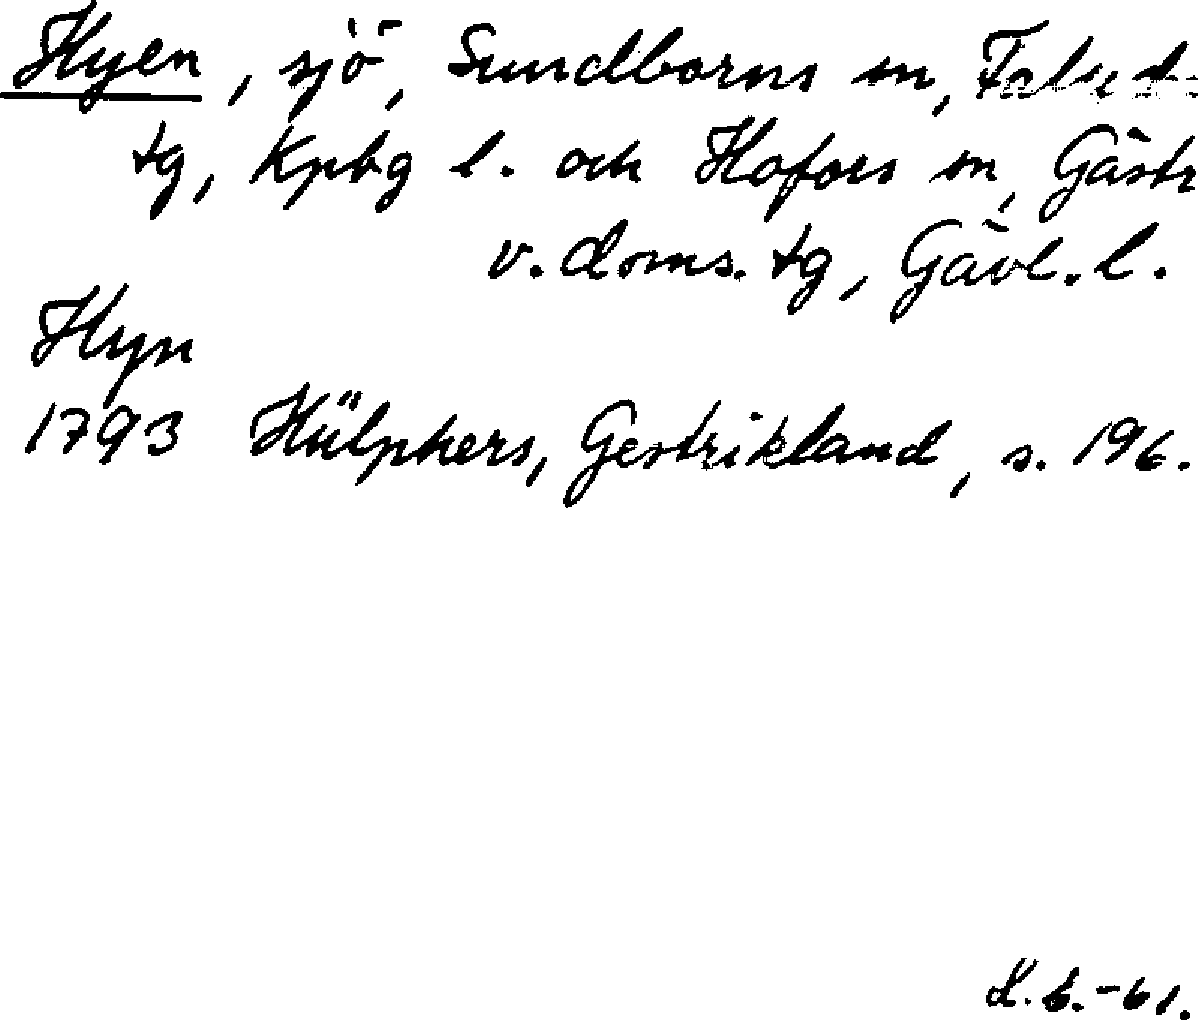 Hyen, sjö, Sundborns sn, Falu d.
tg, Kpbg l. och Hofors sn, Gästr
v. doms. tg, Gävl. l.
Hyn
1793 Hülphers, Gestrikland, s. 196.
-61.